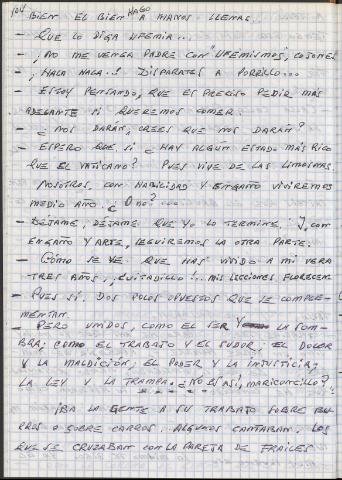 104
HAGO
BIEN EL BIEN A MANOS LLENAS...
- QUE LO DIGA UFEMIA...
- ¡NO ME VENGA PADRE CON "UFEMISMOS", COJONES
- ¡HALA HALA..! DISPARATES A PORRILLO...
- ESTOY PENSANDO, QUE ES PRECISO PEDIR MÁS
ADELANTE SI QUEREMOS COMER.
- ¿NOS DARÁN, CREES QUE NOS DARÁN?
- ESPERO QUE SI ¿HAY ALGUN ESTADO MÁS RICO
QUE EL VATICANO? PUES VIVE DE LAS LIMOSNAS.
NOSOTROS, CON HABILIDAD Y ENGAÑO VIVIREMOS
MEDIO AÑO. ¿O no?...
- DÉJAME, DÉJAME QUE YO LO TERMINE: Y, CON
ENGAÑO Y ARTE, SEGUIREMOS LA OTRA PARTE.
- CÓMO SE VE QUE HAS VIVIDO A MI VERA
TRES AÑOS, ¡QUITADILLO!.. MIS LECCIONES FLORECEN
- PUES SÍ, DOS POLOS OPUESTOS QUE SE COMPLE-
MENTAN.
- PERO UNIDOS, COMO EL SER Y LA SOM-
BRA; COMO EL TRABAJO Y EL SUDOR; EL DOLOR
Y LA MALDICIÓN; EL PODER Y LA INJUSTICIA;
LA LEY Y LA TRAMPA. ¿NO ES ASI, MARICONCILLO?
IBA LA GENTE A SU TRABAJO SOBRE BU-
RROS O SOBRE CARROS. ALGUNOS CANTABAN. LOS
QUE SE CRUZABAN CON LA PAREJA DE FRAILES